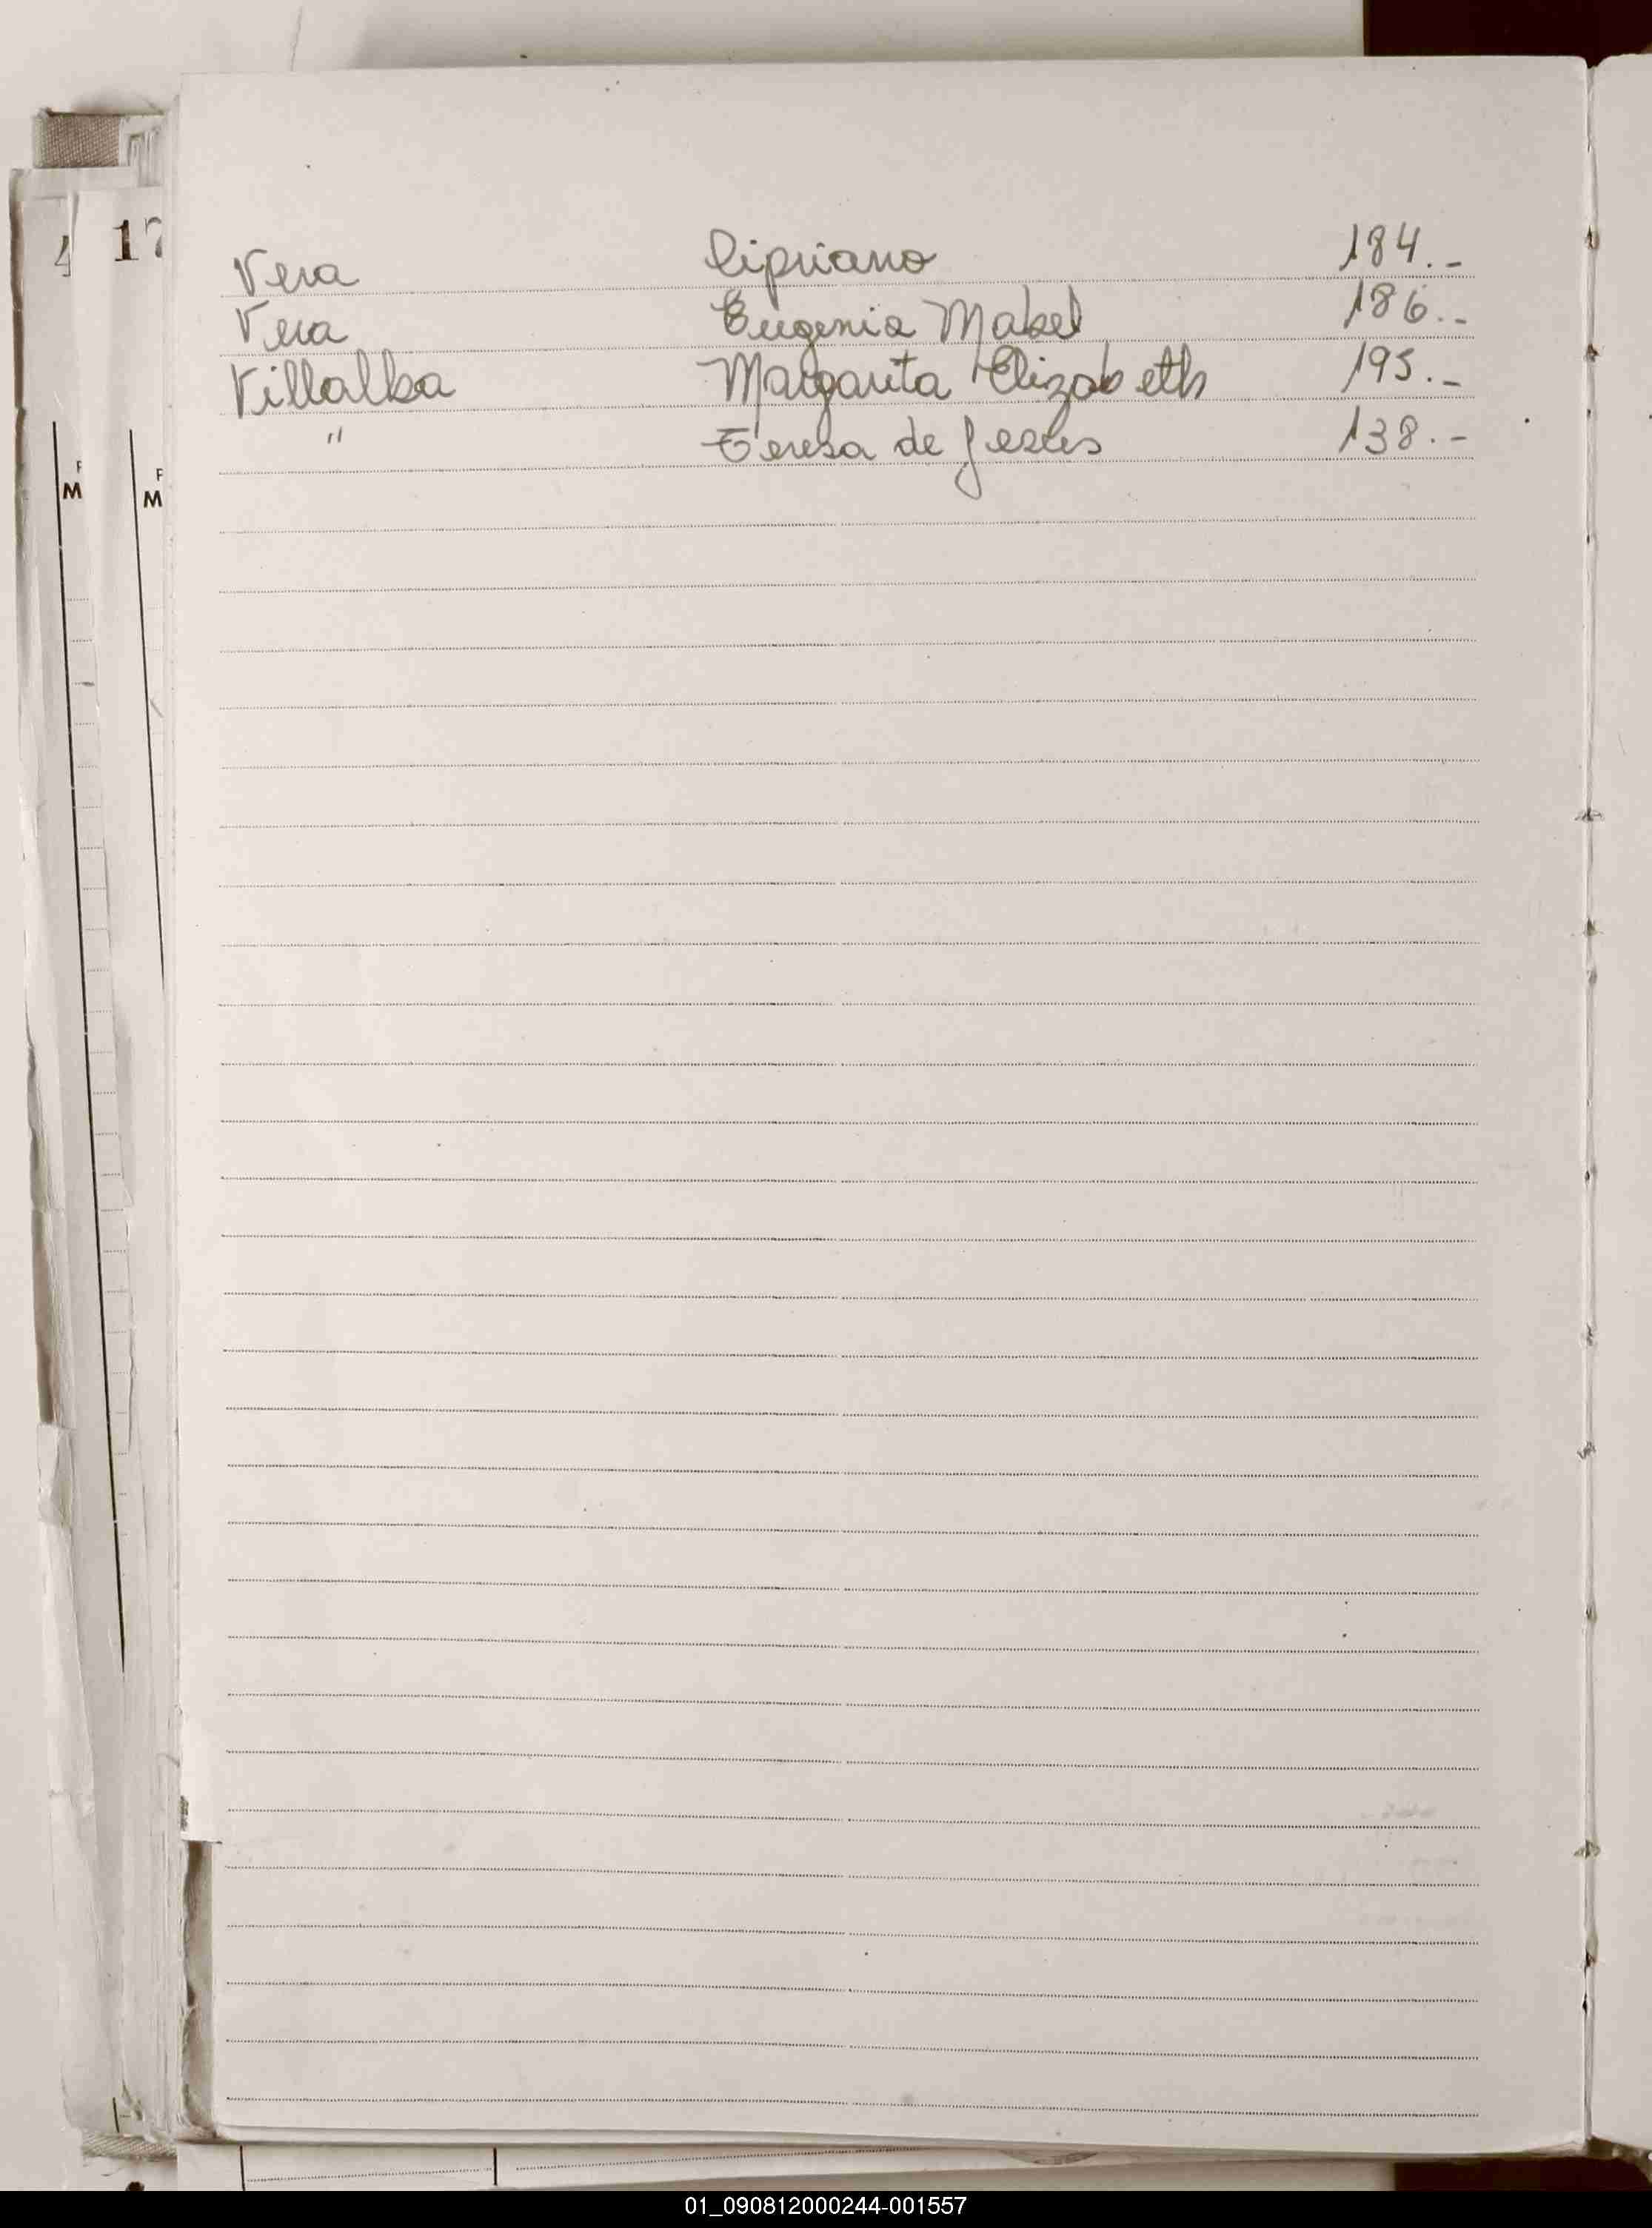 Vera Cipriano 184.-
Vera Eugenia Mabel 186.-
Villalba Margarita Elizabeth 195.-
" Teresa de Jesus 138.-
4 17
F F
M M
01_090812000244-001557